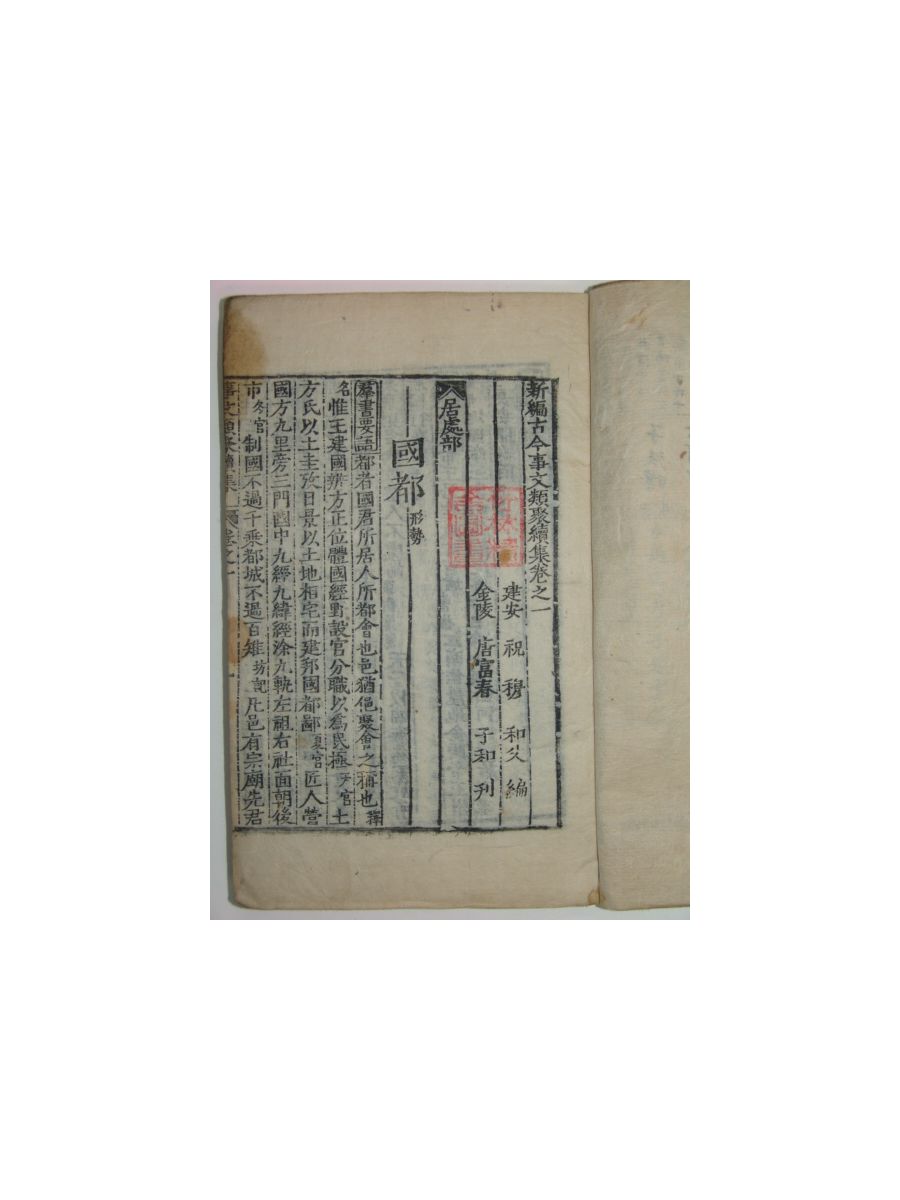 新編古今事文類聚續集卷之一
建安 祝 穆 和父 編
金陵 唐富春 子和 刋
居處部
國都 形勢
羣書要語 都者國君所居人所都會也邑猶俋聚會之稱也 釋
名 惟王建國辨方正位體國經野設官分職以爲民極 天官 土
方氏以土圭攷日景以土地相宅而建邦國都鄙 夏官 匠人營
國方九里旁三門國中九經九緯經涂九軌左祖右社面朝後
市 冬官 制國不過千乘都城不過百雉 坊記 凡邑有宗廟先君
事文類聚續集 卷之一